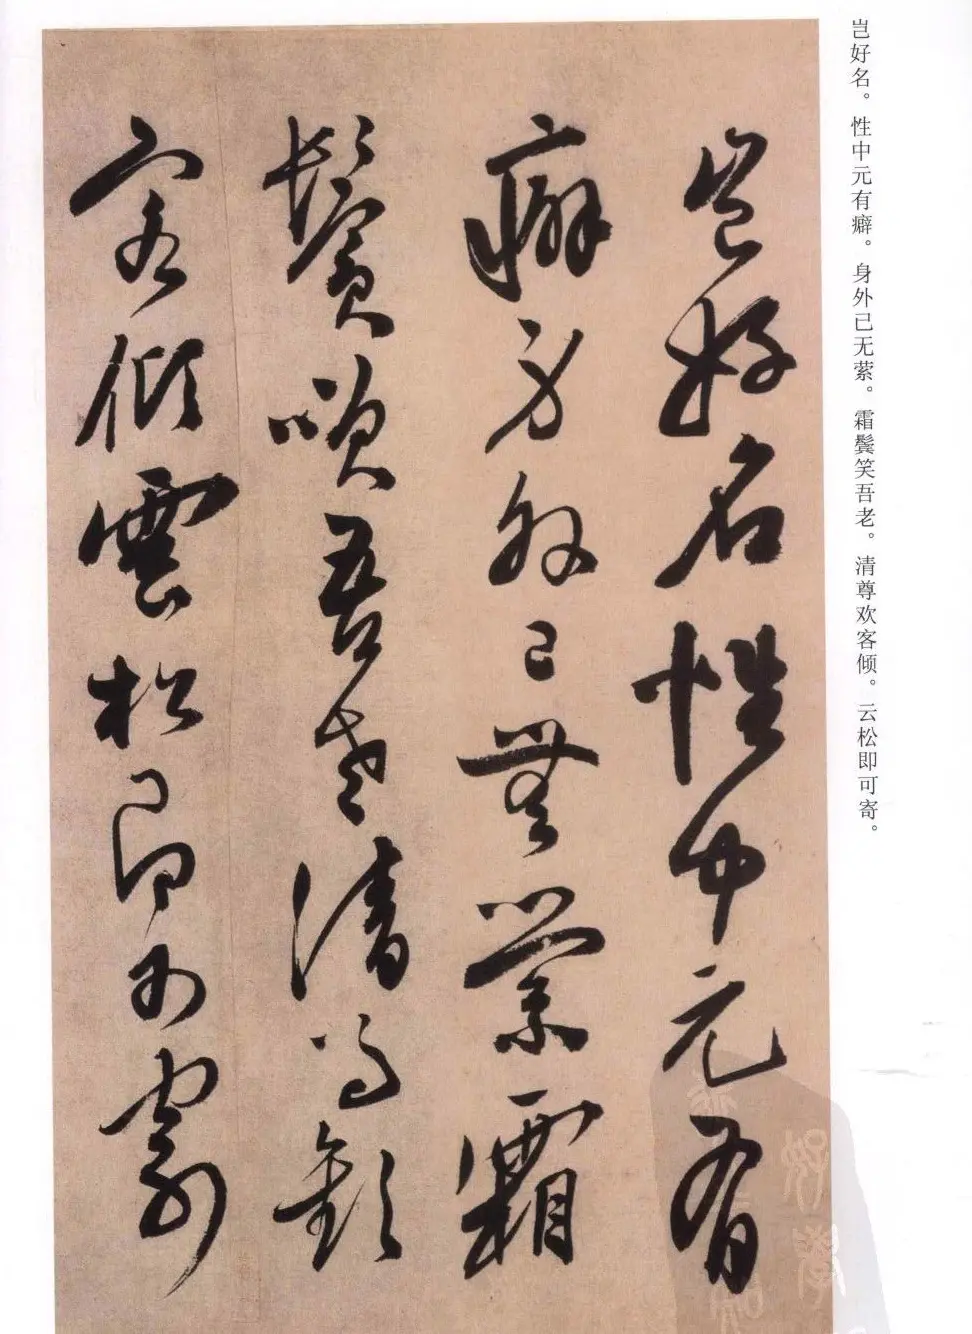 岂好名。性中元有癖。身外已无萦。霜鬓笑吾老。清尊欢客倾。云松即可寄。
豈好名性中元有
癖身外已無縈霜
鬢咲吾老清尊歡
客傾雲松即可寄